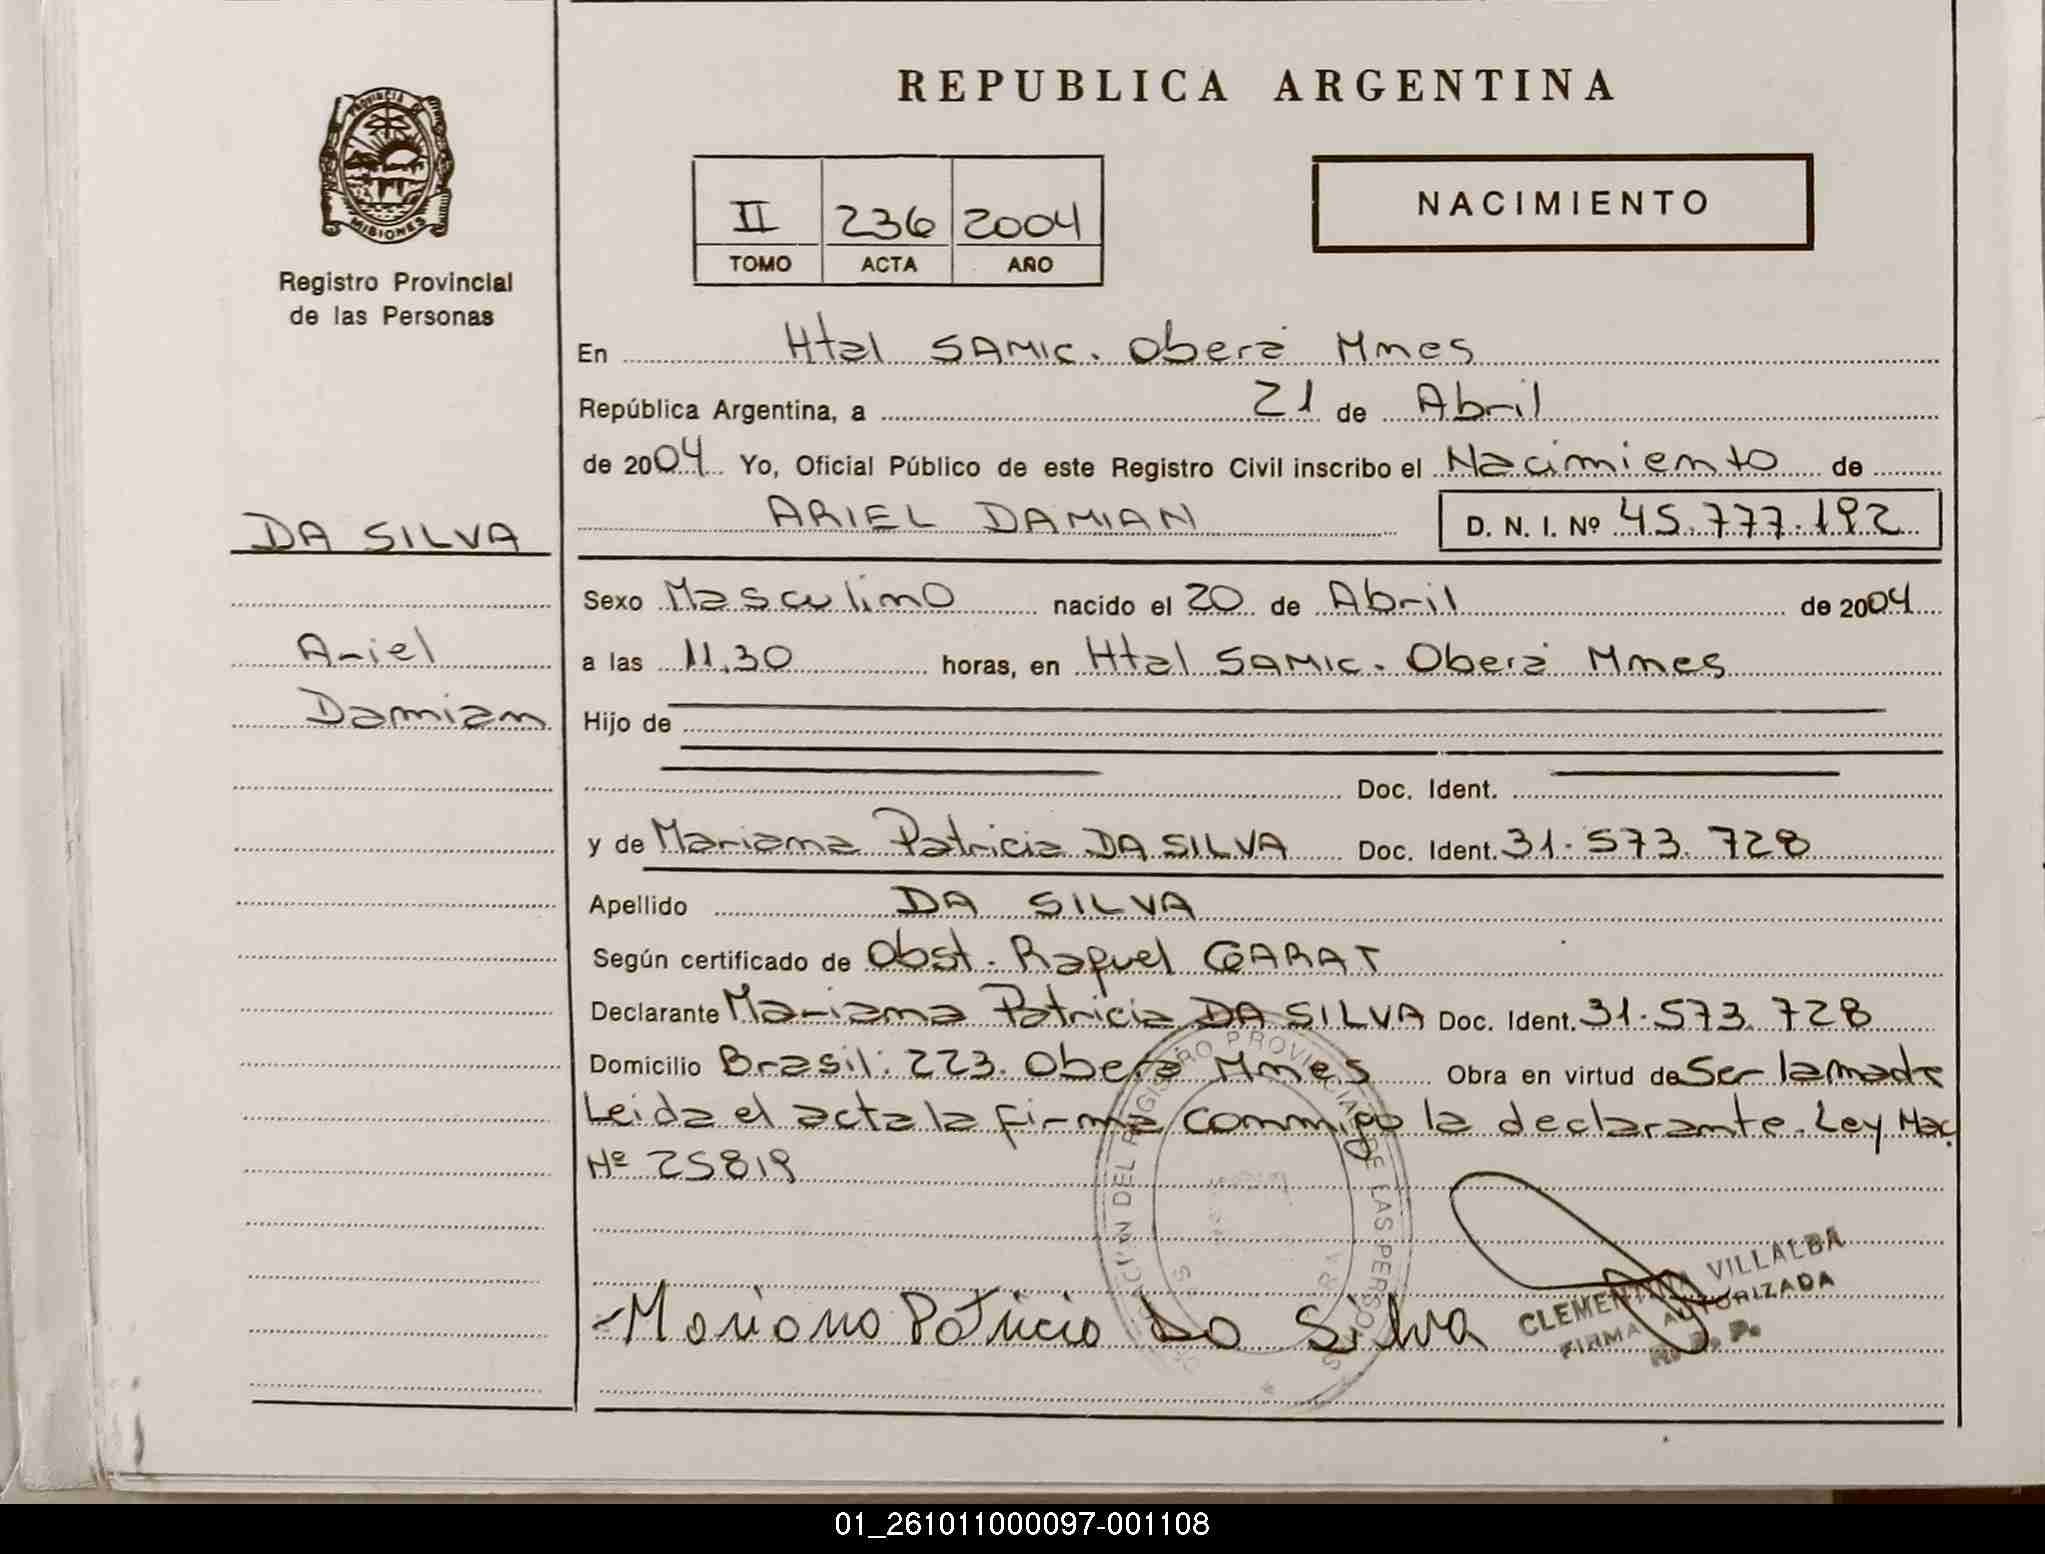 PROVINCIA DE
MISIONES
Registro Provincial
de las Personas
DA SILVA
Ariel
Damian
REPUBLICA ARGENTINA
II 236 2004
TOMO ACTA AÑO
NACIMIENTO
En Htal SAMIC. Oberá Mnes
República Argentina, a 21 de Abril
de 2004 Yo, Oficial Público de este Registro Civil inscribo el Nacimiento de
ARIEL DAMIAN D. N. I. Nº 45.777.192
Sexo Masculino nacido el 20 de Abril de 2004
a las 11.30 horas, en Htal SAMIC. Oberá Mnes
Hijo de
Doc. Ident.
y de Mariana Patricia DA SILVA Doc. Ident. 31.573.728
Apellido DA SILVA
Según certificado de Obst. Raquel GARAT
Declarante Mariana Patricia DA SILVA Doc. Ident. 31.573.728
Domicilio Brasil: 223. Oberá Mnes Obra en virtud de Ser la madre
Leida el acta la firma conmigo la declarante. Ley Nac.
Nº 25819
DEL REGISTRO PROVINCIAL DE LAS PERSONAS
Mariana Patricia Da Silva
CLEMENTINA VILLALBA
FIRMA AUTORIZADA
R. P. P.
01_261011000097-001108